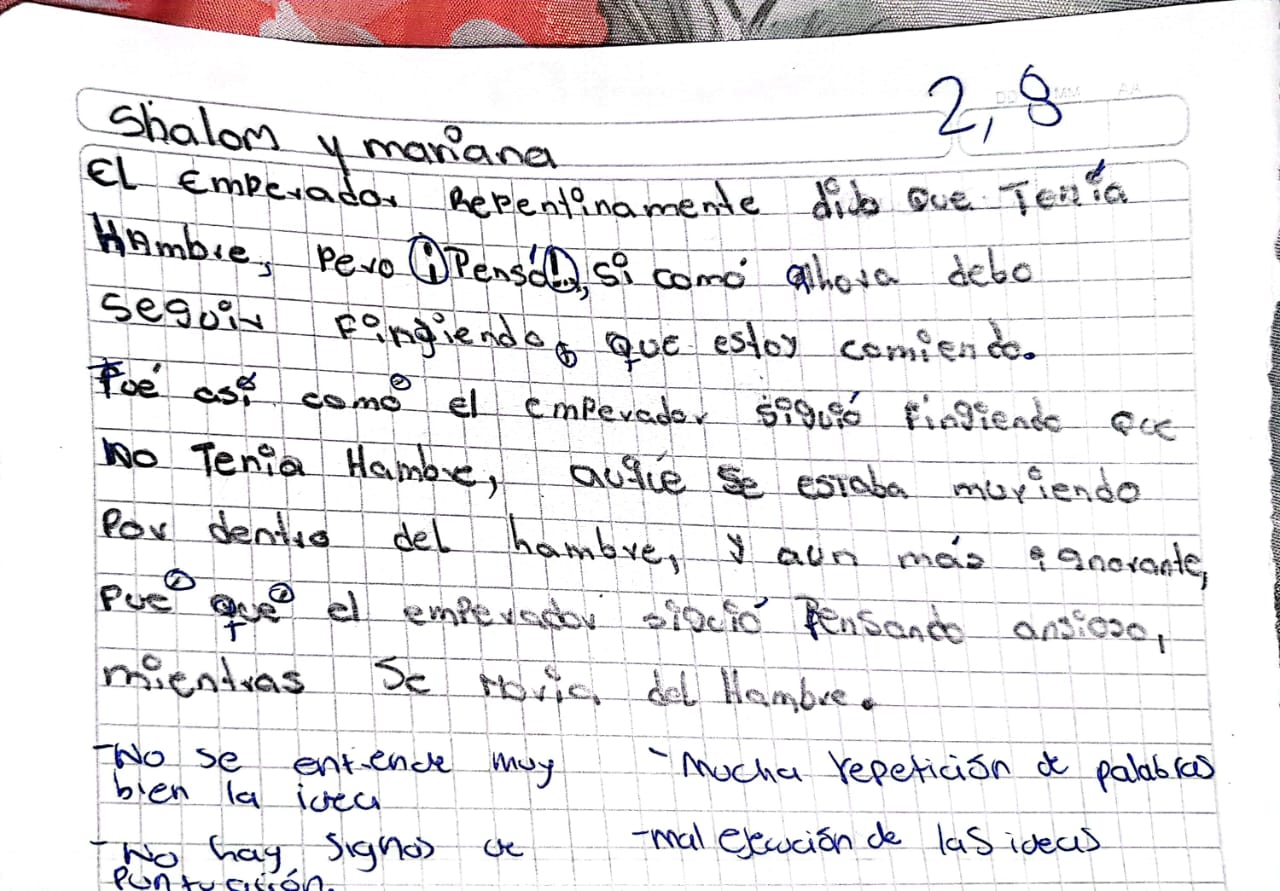 2,8
Shalom y mariana
El Emperador Repentinamente dijo que Tenía
Hambre, pero ¡Pensó!, si como ahora debo
seguir Fingiendo, que estoy comiendo.
Fué así como el emperador siguió Fingiendo que
No Tenia Hambre, auque se estaba muriendo
Por dentro del hambre, y aun más ignorante,
Fue que el emperador siguió Pensando ansioso,
mientras Se moria del Hambre.
-No se entiende muy
bien la idea
-Mucha repetición de palabras
-No hay signos de
Puntuación.
-mal ejecución de las ideas